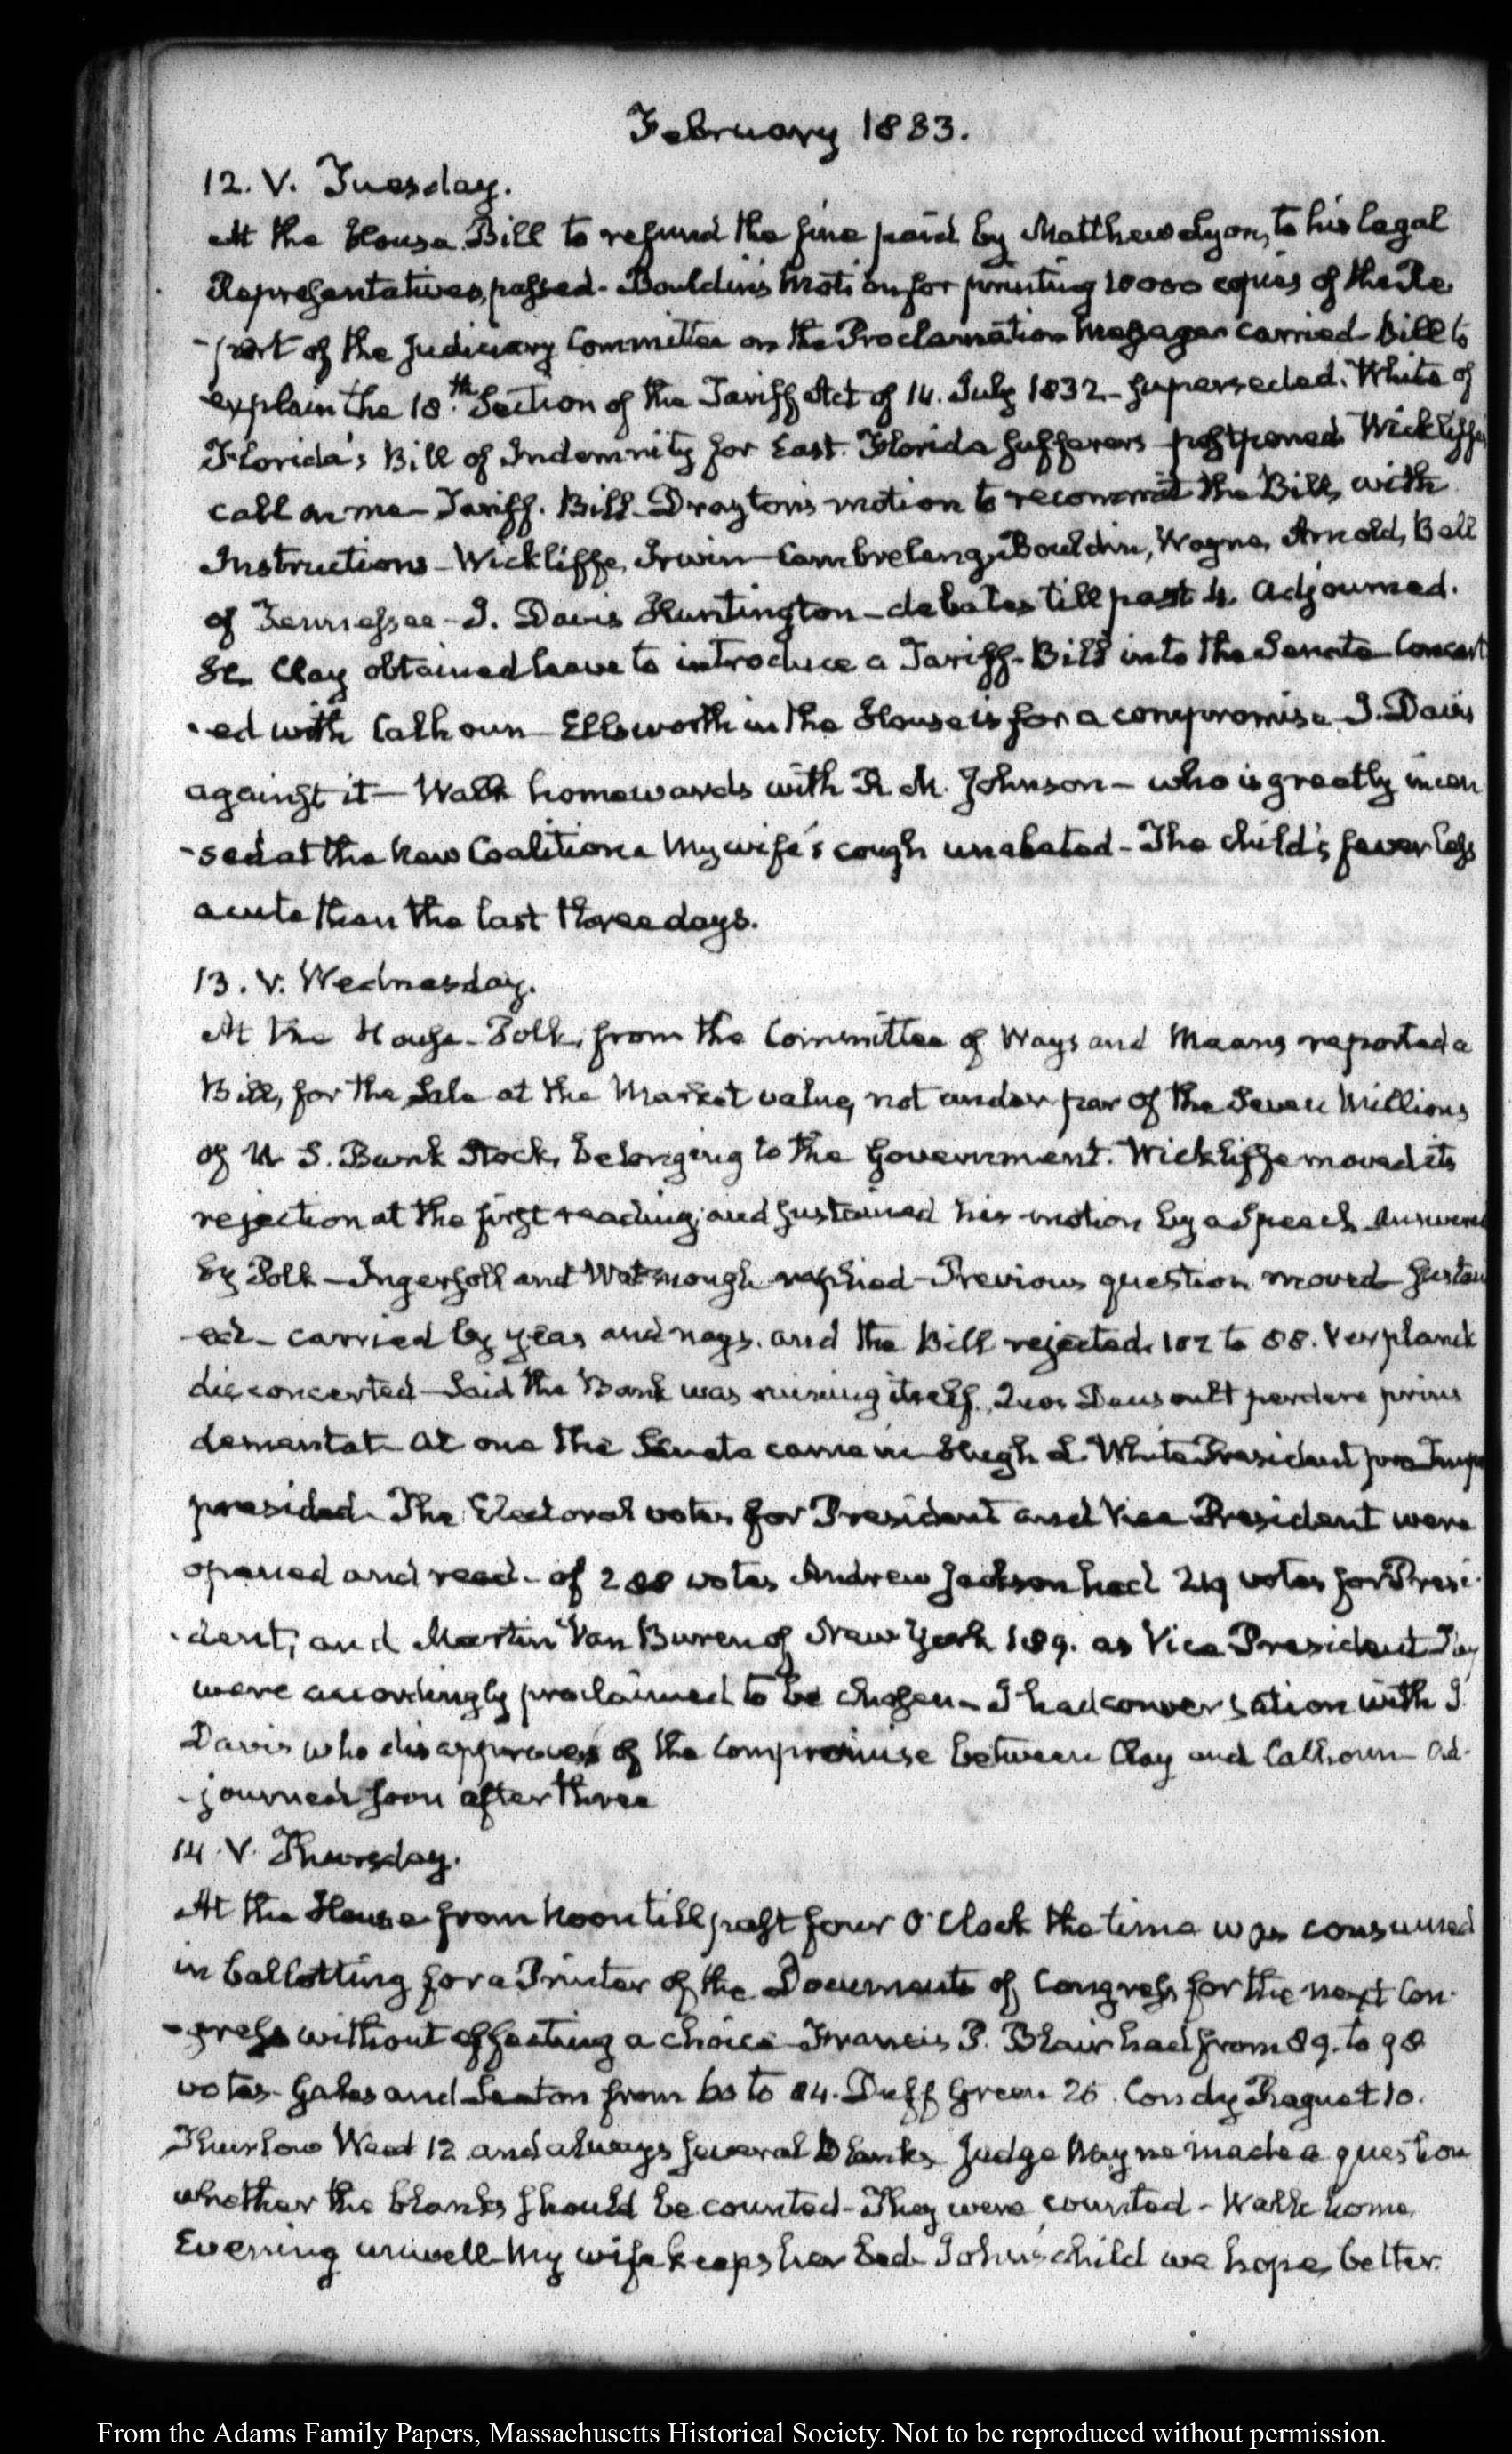 February 1833.
12. V. Tuesday.
At the House. Bill to refund the fine paid by Matthew Lyon, to his legal
Representatives, passed. Bouldin's Motion for printing 10000 copies of the Re
-port of the Judiciary Committee on the Proclamation Message carried Bill to
explain the 18.th Section of the Tariff Act of 14. July 1832 superseded. White of
Florida's Bill of Indemnity for East Florida sufferers postponed Wickliffe's
call on me Tariff. Bill Drayton's motion to recommit the Bill, with
Instructions Wickliffe, Irwin Cambreleng, Bouldin, Wayne, Arnold, Bell
of Tennessee J. Davis Huntington debates till past 4. Adjourned.
H. Clay obtained leave to introduce a Tariff Bill into the Senate Concert
-ed with Calhoun Ellsworth in the House is for a compromise J. Davis
against it Walk homewards with R. M. Johnson who is greatly incen
-sed at the new Coalition My wife's cough unabated The child's fever less
acute than the last three days.
13. V. Wednesday.
At the House. Polk, from the Committee of Ways and Means reported a
Bill, for the Sale at the Market value, not under par of the Seven Millions
of U S. Bank Stock, belonging to the Government. Wickliffe moved its
rejection at the first reading; and sustained his motion by a Speech answered
by Polk Ingersoll and Watmough replied Previous question moved sustain
ed carried by yeas and nays. and the Bill rejected. 102 to 88. Verplanck
disconcerted Said the Bank was ruining itself. Quos Deus vult perdere prius
dementat. At one the Senate came in Hugh L White President pro Tempore
presided. The Electoral votes for President and Vice President were
opened and read. of 288 votes Andrew Jackson had 219 votes for Presi-
-dent; and Martin Van Buren of New York 189. as Vice President They
were accordingly proclaimed to be chosen. I had conversation with J.
Davis who disapproves of the compromise between Clay and Calhoun Ad-
-journed soon after three
14. V. Thursday.
At the House from Noon till past four O'Clock the time was consumed
in ballotting for a Printer of the Documents of Congress for the next Con-
-gress without effecting a choice Francis P. Blair had from 89. to 98
votes. Gales and Seaton from to 84. Duff Green 26. Condy Raguet 10.
Thurlow Weed 12 and always several blanks Judge Wayne made a question
whether the blanks should be counted They were counted. Walk home.
Evening unwell My wife keeps her bed John's child we hope better.
From the Adams Family Papers, Massachusetts Historical Society. Not to be reproduced without permission.